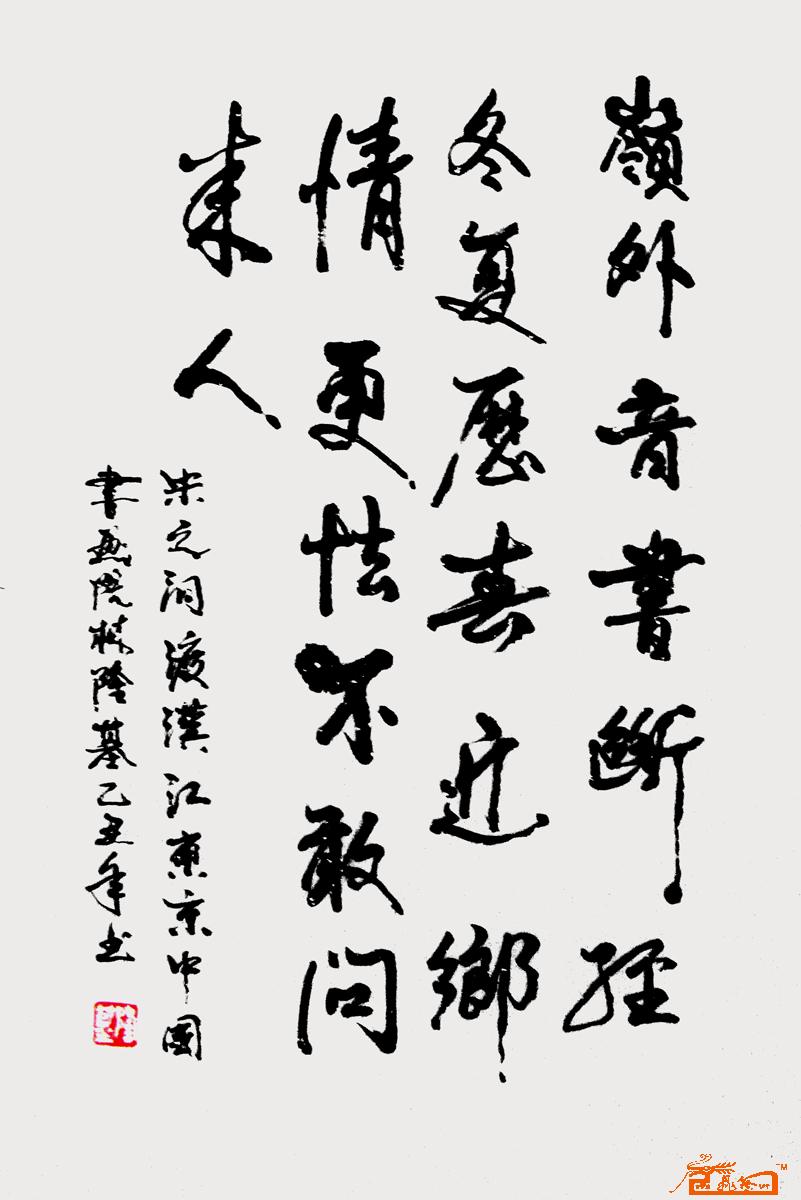 嶺外音書斷經
冬复歷春近鄉
情更怯不敢問
来人
宋之问渡漢江東京中國
書畫院林隆基乙丑年书